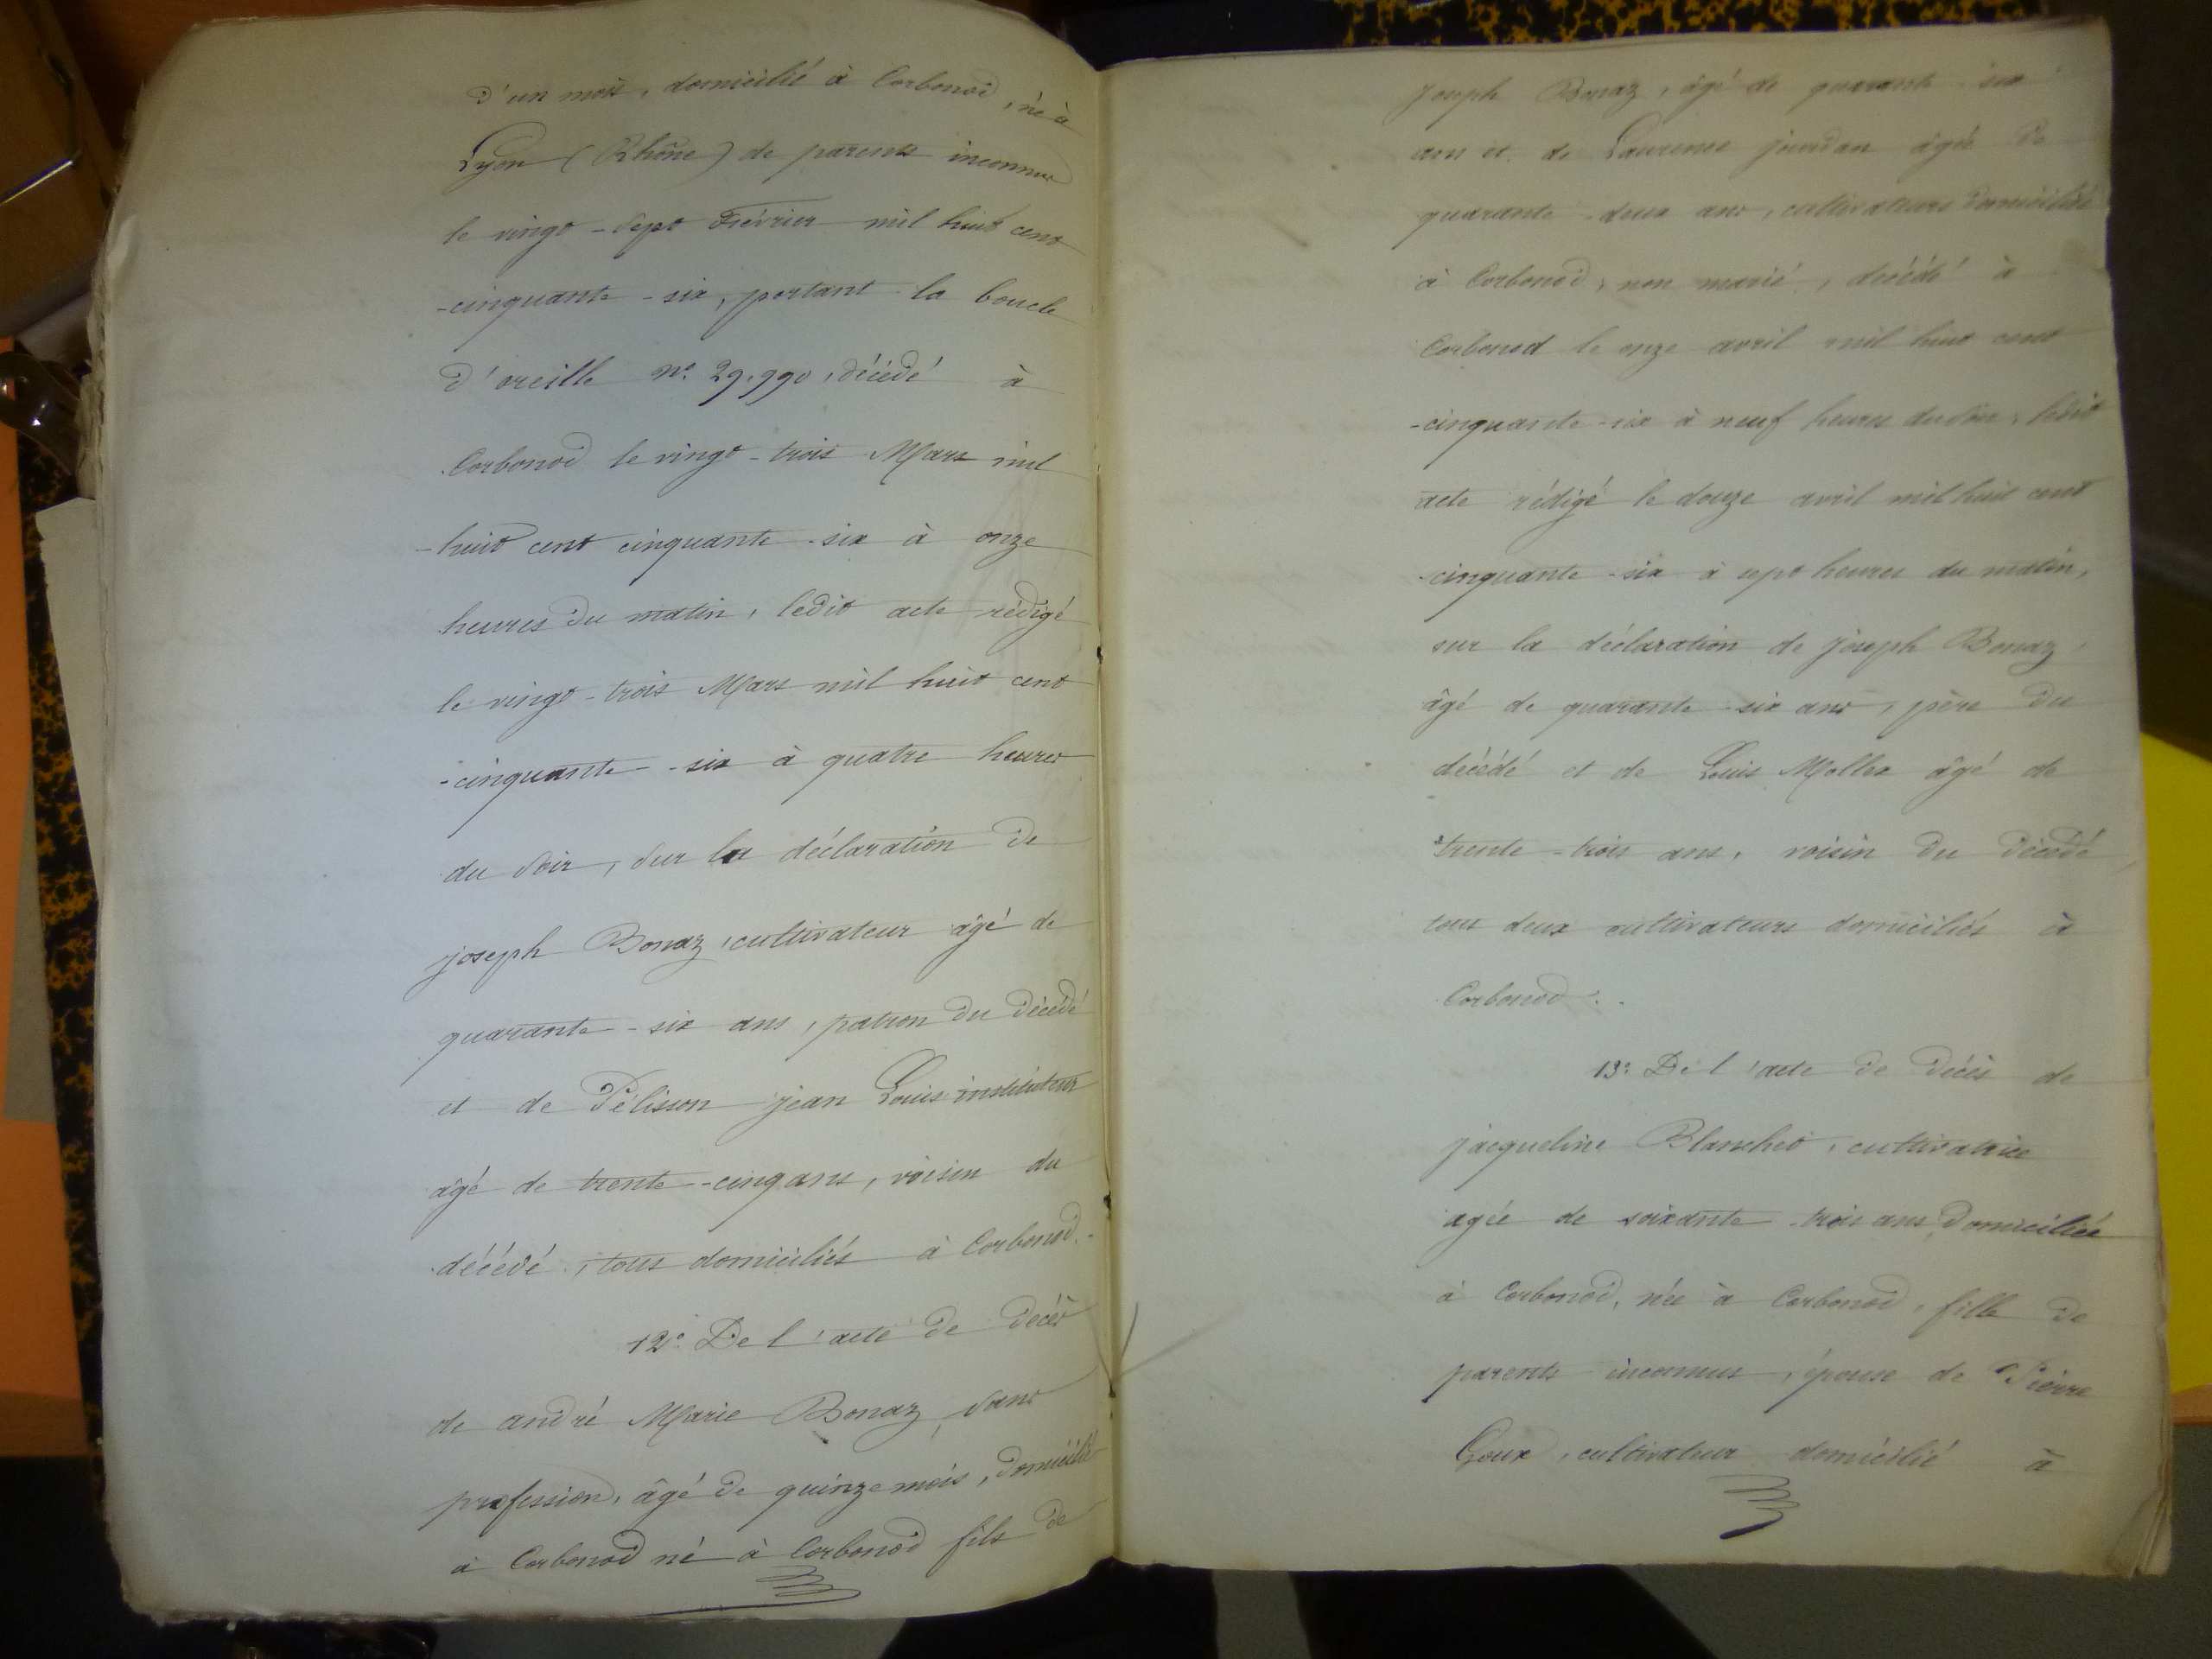 d'un mois, domicilié à Corbonod, né à
Lyon (Rhône) de parents inconnus
le vingt-sept Février mil huit cent
-cinquante-six, portant la boucle
d'oreille n° 29,990, décédé à
Corbonod le vingt-trois Mars mil
-huit cent cinquante-six à onze
heures du matin, ledit acte rédigé
le vingt-trois Mars mil huit cent
-cinquante-six à quatre heures
du soir, sur la déclaration de
joseph Bonaz, cultivateur âgé de
quarante-six ans, patron du décédé
et de Pélisson jean Louis instituteur
âgé de trente-cinq ans, voisin du
décédé, tous domiciliés à Corbonod.-
12° De l'acte de décès
de andré Marie Bonaz, sans
profession, âgé de quinze mois, domicilié
à Corbonod né à Corbonod fils de
joseph Bonaz, âgé de quarante-six
ans et de Laurence jourdan âgée de
quarante-deux ans, cultivateurs domiciliés
à Corbonod, non marié, décédé à
Corbonod le onze avril mil huit cent
-cinquante-six à neuf heures du soir, ledit
acte rédigé le douze avril mil huit cent
-cinquante-six à sept heures du matin,
sur la déclaration de joseph Bonaz
âgé de quarante-six ans, père du
décédé et de Louis Mollex âgé de
trente-trois ans, voisin du décédé,
tous deux cultivateurs domiciliés à
Corbonod.-
13° De l'acte de décès de
jacqueline Blanchet, cultivatrice
agée de soixante-trois ans, domiciliée
à Corbonod, née à Corbonod, fille de
parents inconnus, épouse de Pierre
Goux, cultivateur domicilié à